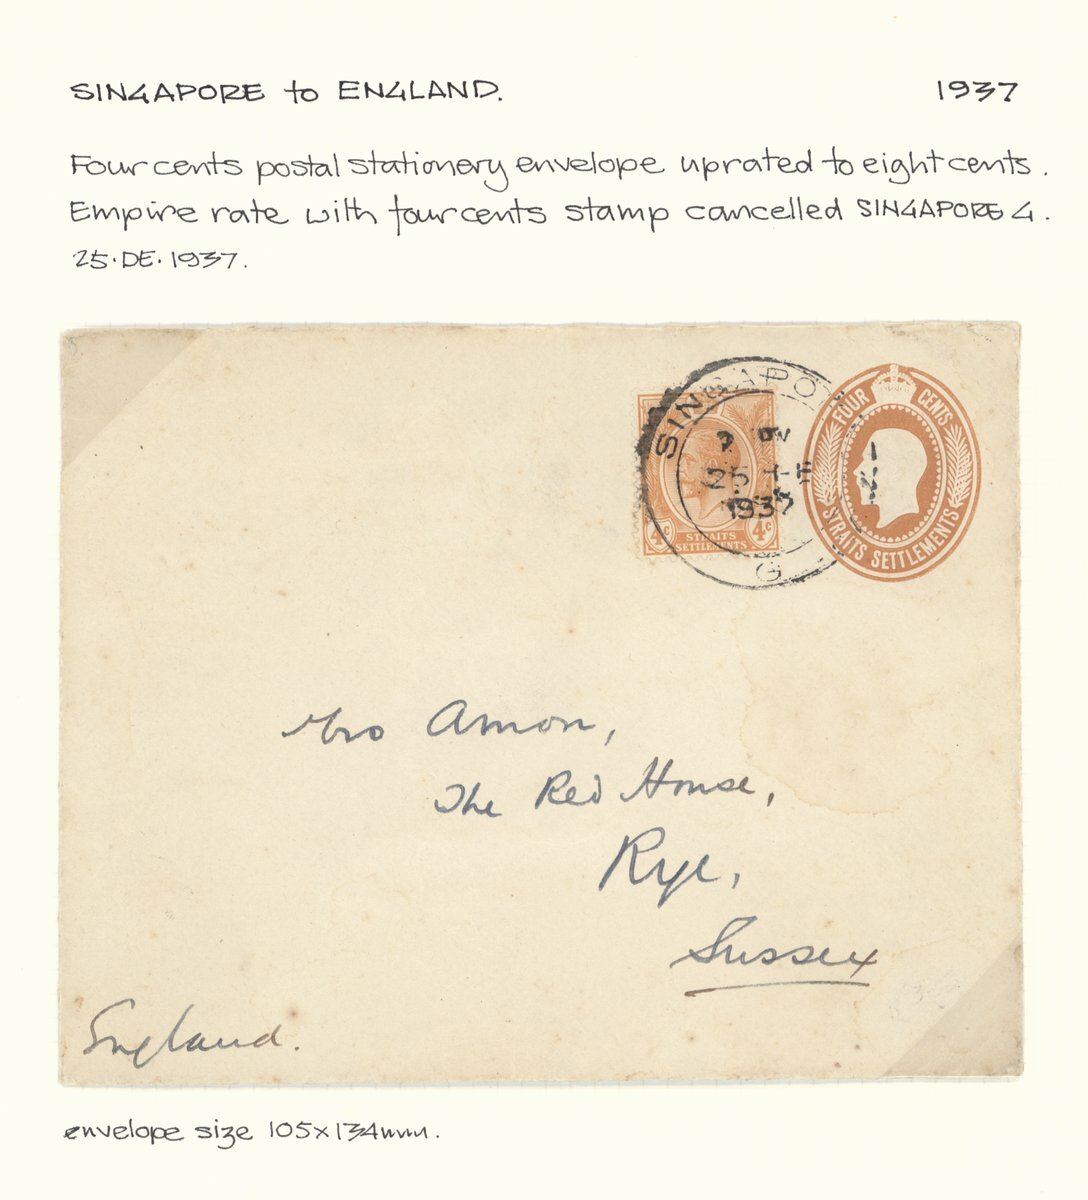 SINGAPORE to ENGLAND. 1937
Four cents postal stationery envelope uprated to eight cents.
Empire rate with four cents stamp cancelled SINGAPORE G.
25·DE·1937.
SINGAPO
25 DE
1937
G
4c 4c
STRAITS
SETTLEMENTS
FOUR CENTS
STRAITS SETTLEMENTS
Mrs Amon,
The Red House,
Rye,
Sussex
England.
envelope size 105x134mm.